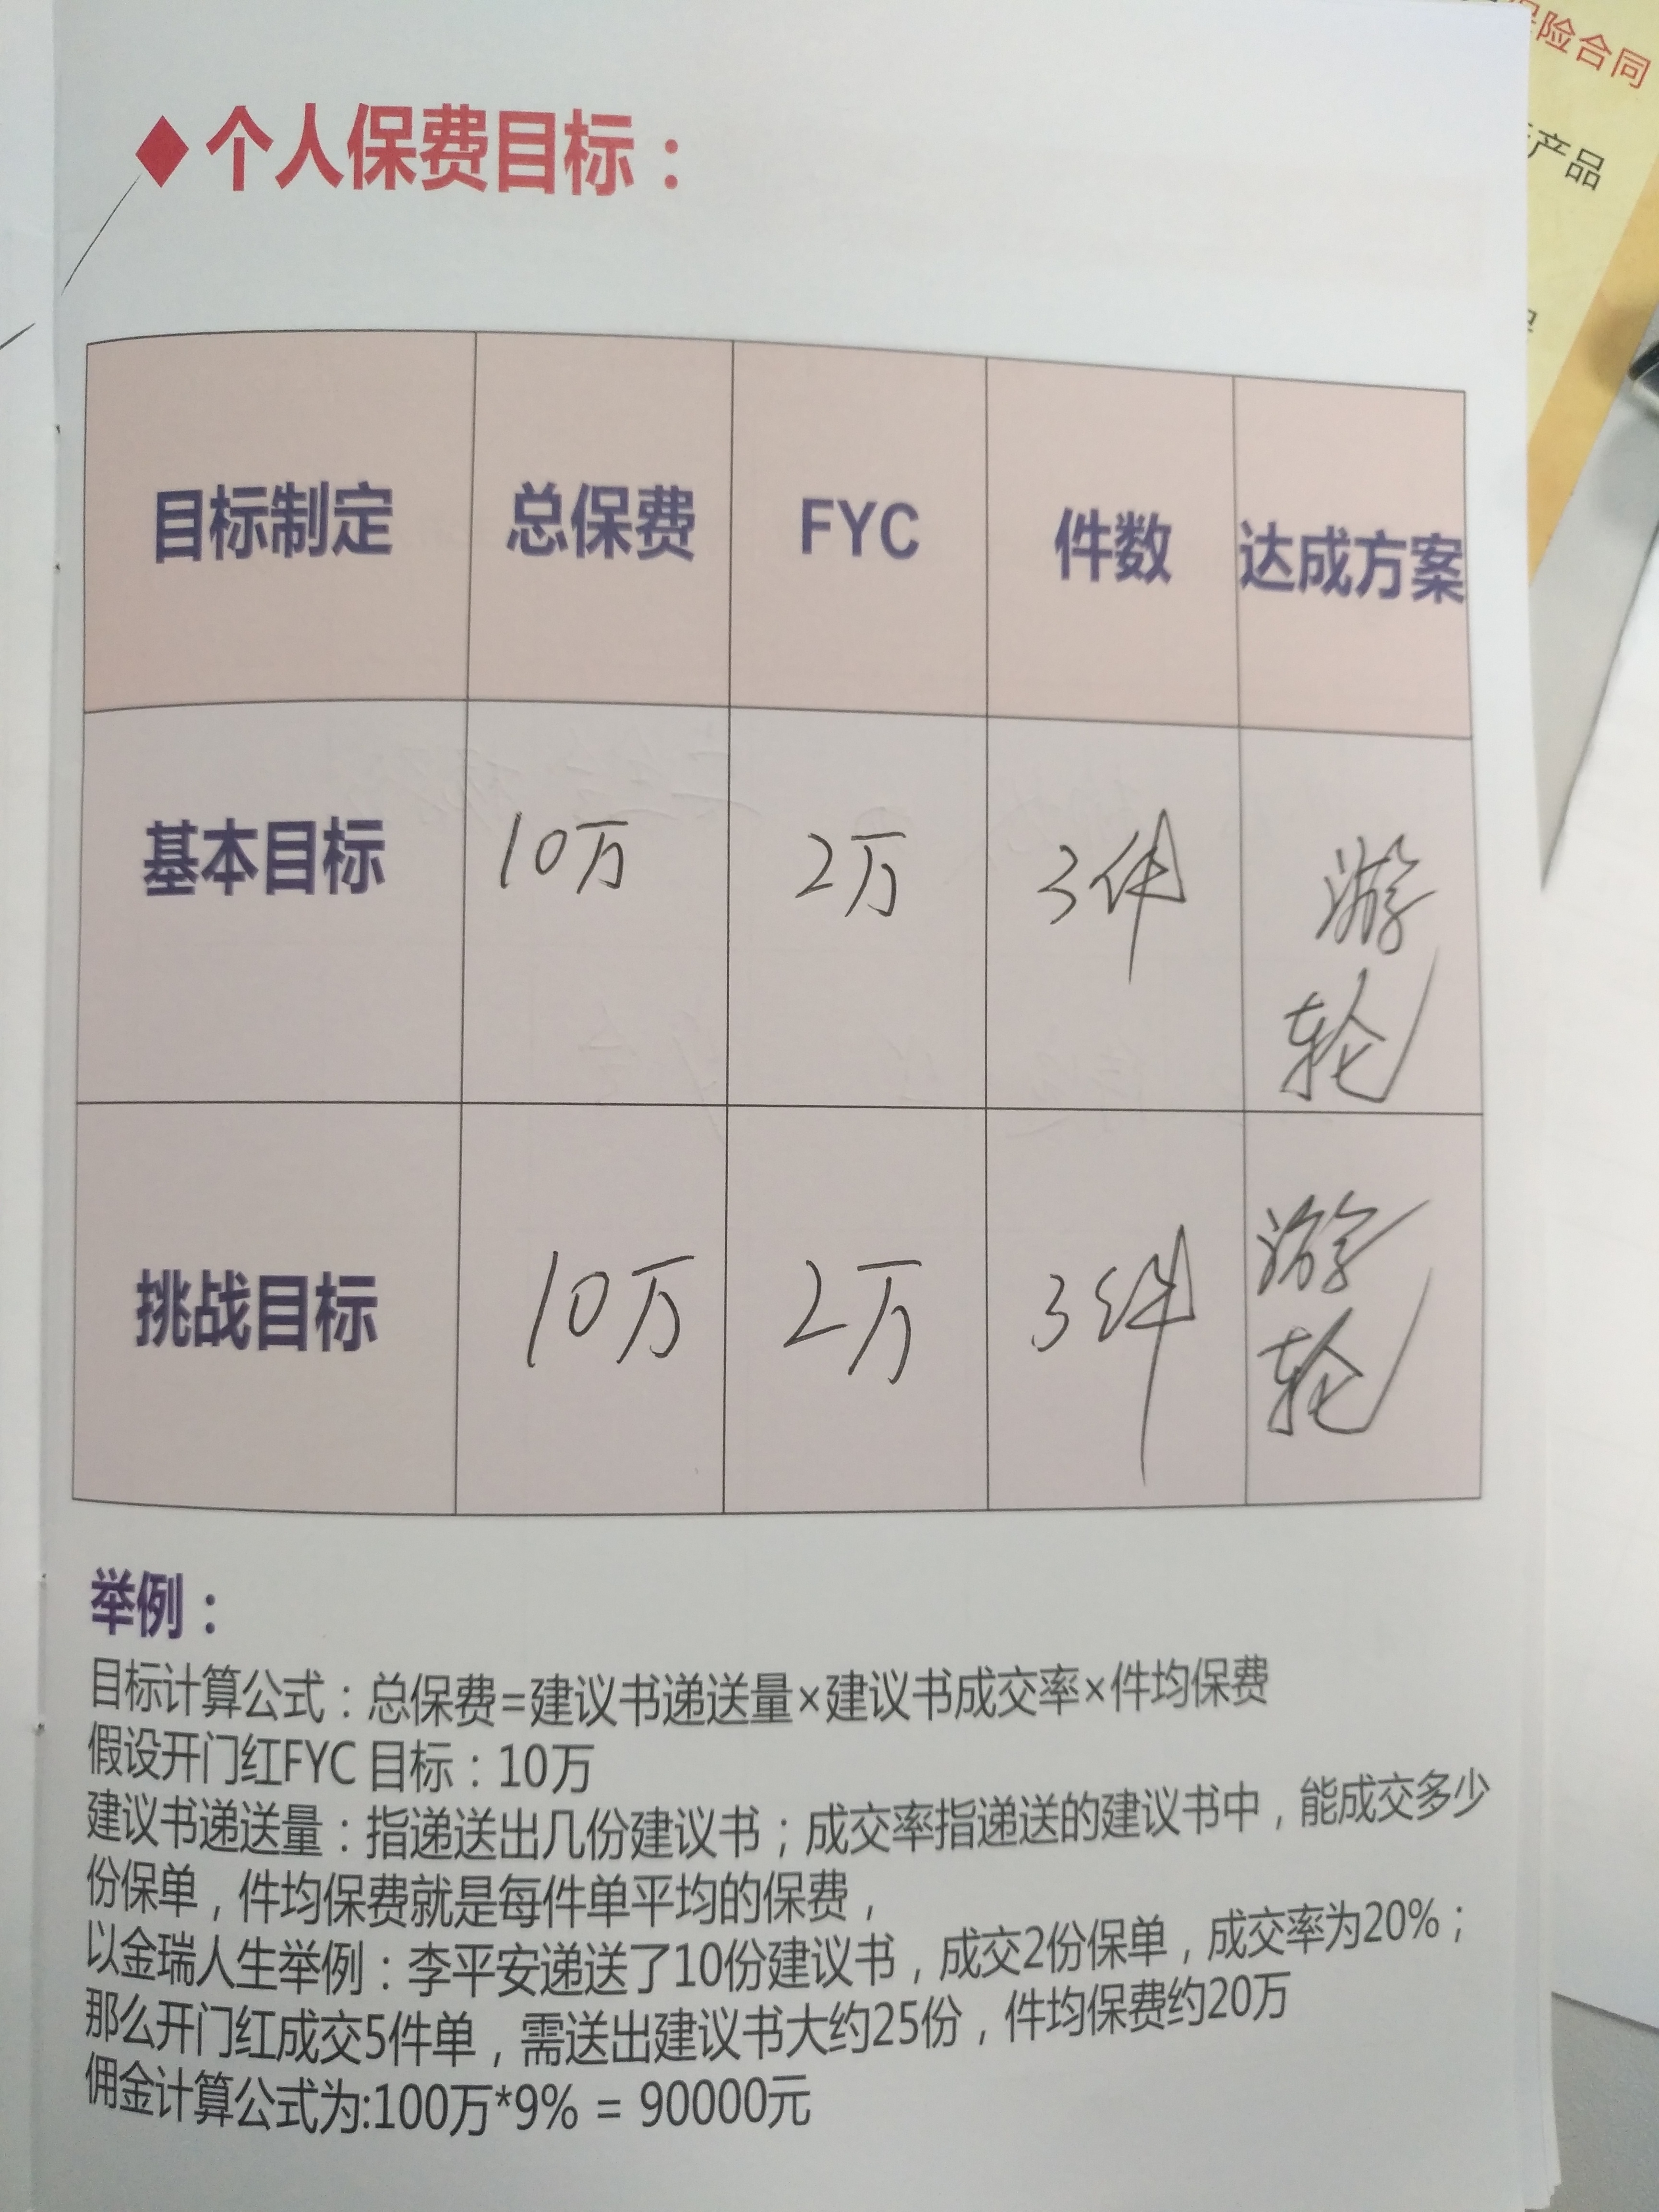 保险合同
产品
◆个人保费目标：
目标制定 总保费 FYC 件数 达成方案
基本目标 10万 2万 3件 游
轮
挑战目标 10万 2万 3件 游
轮
举例：
目标计算公式：总保费=建议书递送量×建议书成交率×件均保费
假设开门红FYC 目标：10万
建议书递送量：指递送出几份建议书；成交率指递送的建议书中，能成交多少
份保单，件均保费就是每件单平均的保费，
以金瑞人生举例：李平安递送了10份建议书，成交2份保单，成交率为20%；
那么开门红成交5件单，需送出建议书大约25份，件均保费约20万
佣金计算公式为:100万*9% = 90000元